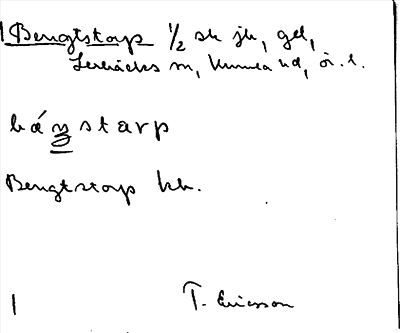 Bengtstorp 1/2 sk jk, gel,
Lerbäcks sn, Kumla hd, ör. l.
bán̳starp
Bengtstorp kb.
T. Ericsson